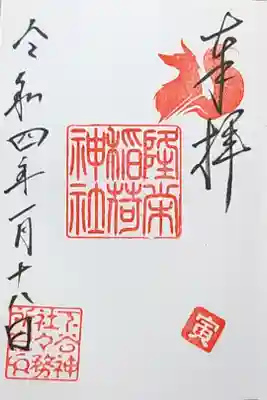 奉拝
隆栄
稲荷
神社
寅
令和四年一月十八日
下谷神
社々務
所印